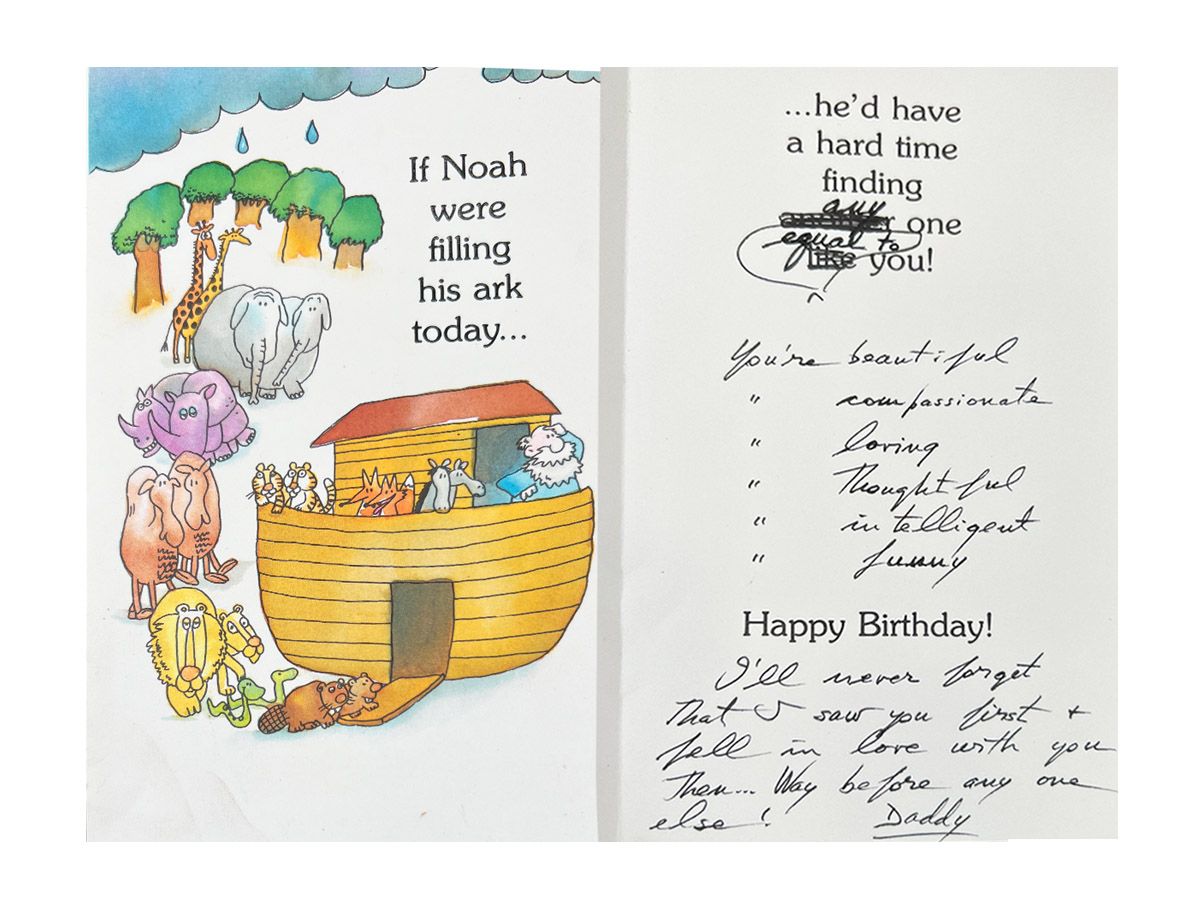 If Noah
were
filling
his ark
today...
...he'd have
a hard time
finding
any
another one
equal to
like you!
You're beautiful
" compassionate
" loving
" Thoughtful
" intelligent
" funny
Happy Birthday!
I'll never forget
That I saw you first +
fell in love with you
Then... Way before any one
else!
Daddy